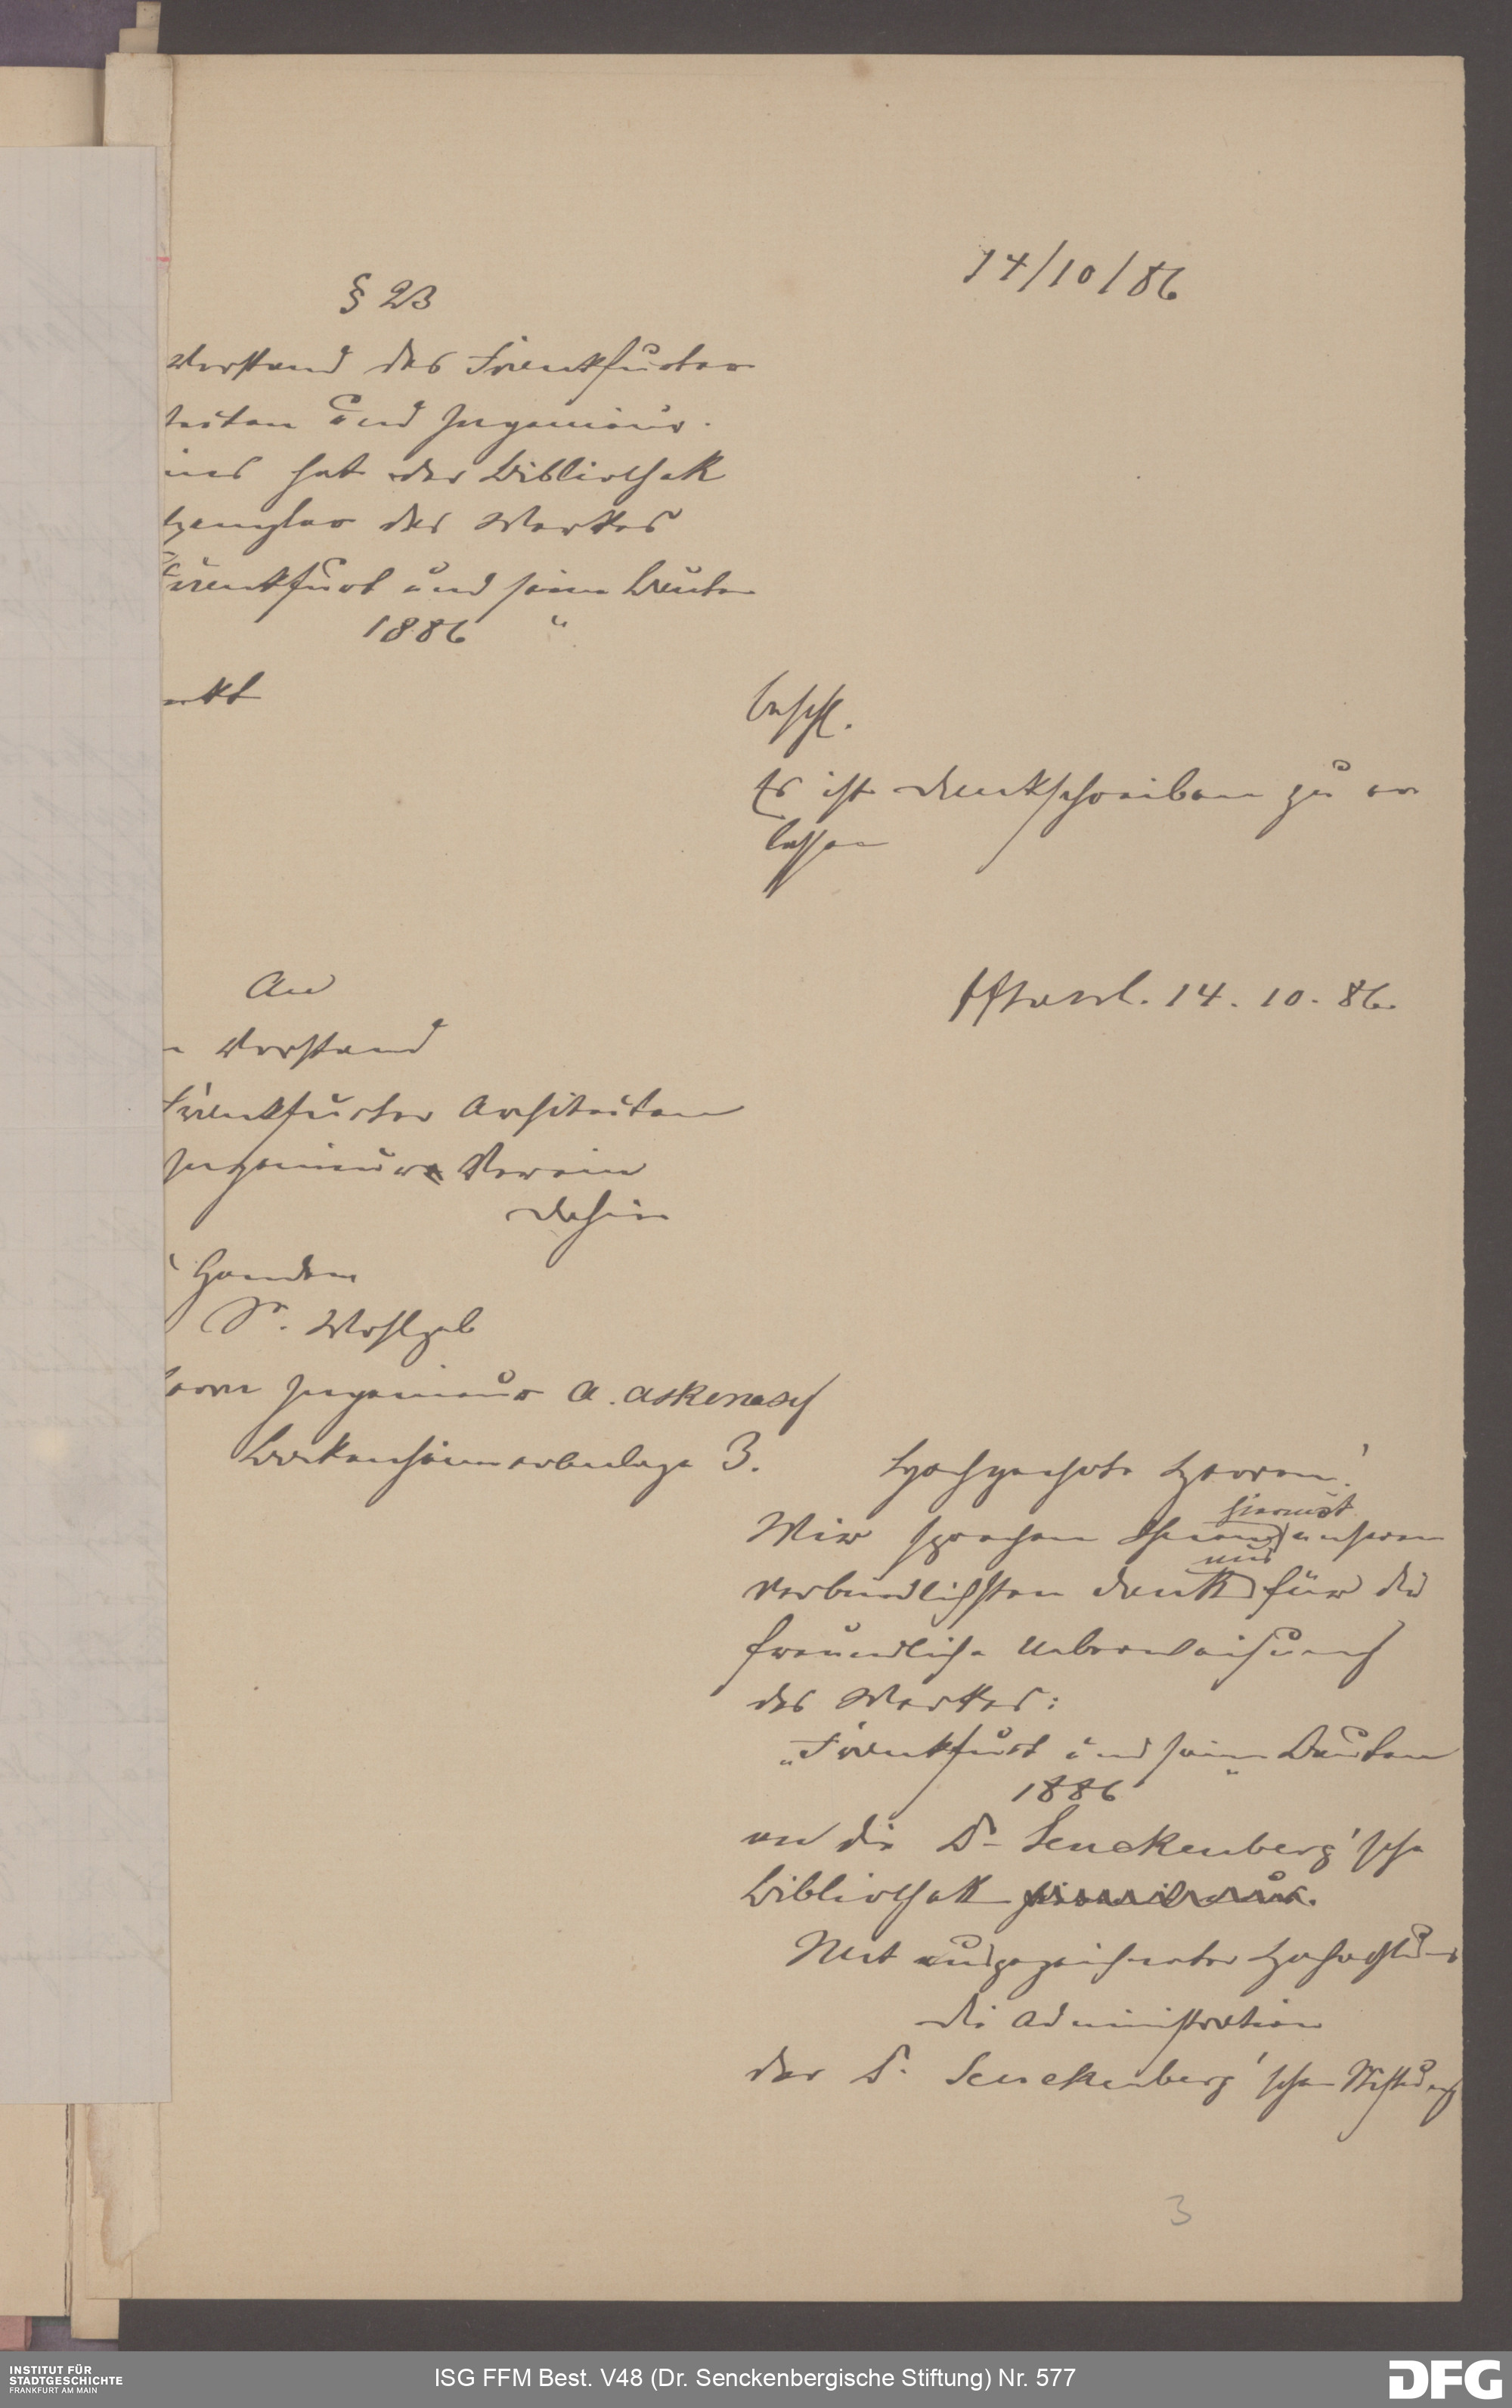 14/10/86
§ 23
Vorstand des Frankfurter
tecten und Ingenieur-
ines hat der Bibliothek
xemplar des Werkes
Frankfurt und seine Bauten
1886 "
nkt
beschl.
Es ist Dankschreiben zu er
lassen
14. 10. 86.
An
n Vorstand
Frankfurter Architecten
Ingenieur Verein
dahier
Handen
Sr. Wohlgeb
errn Ingenieur A. Askenasy
Bockenheimeranlage 3.
Hochgeehrte Herren!
hiermit
Wir sprechen Ihnen unseren
aus
verbindlichsten Dank für die
freundliche Ueberweisung
des Werkes:
„Frankfurt und seine Bauten
1886 "
an die Dr. Senckenberg'sche
Bibliothek
Mit ausgezeichneter Hochachtung
die Administration
der Dr. Senckenberg'schen Stiftung
3
INSTITUT FÜR
STADTGESCHICHTE
FRANKFURT AM MAIN
ISG FFM Best. V48 (Dr. Senckenbergische Stiftung) Nr. 577
DFG